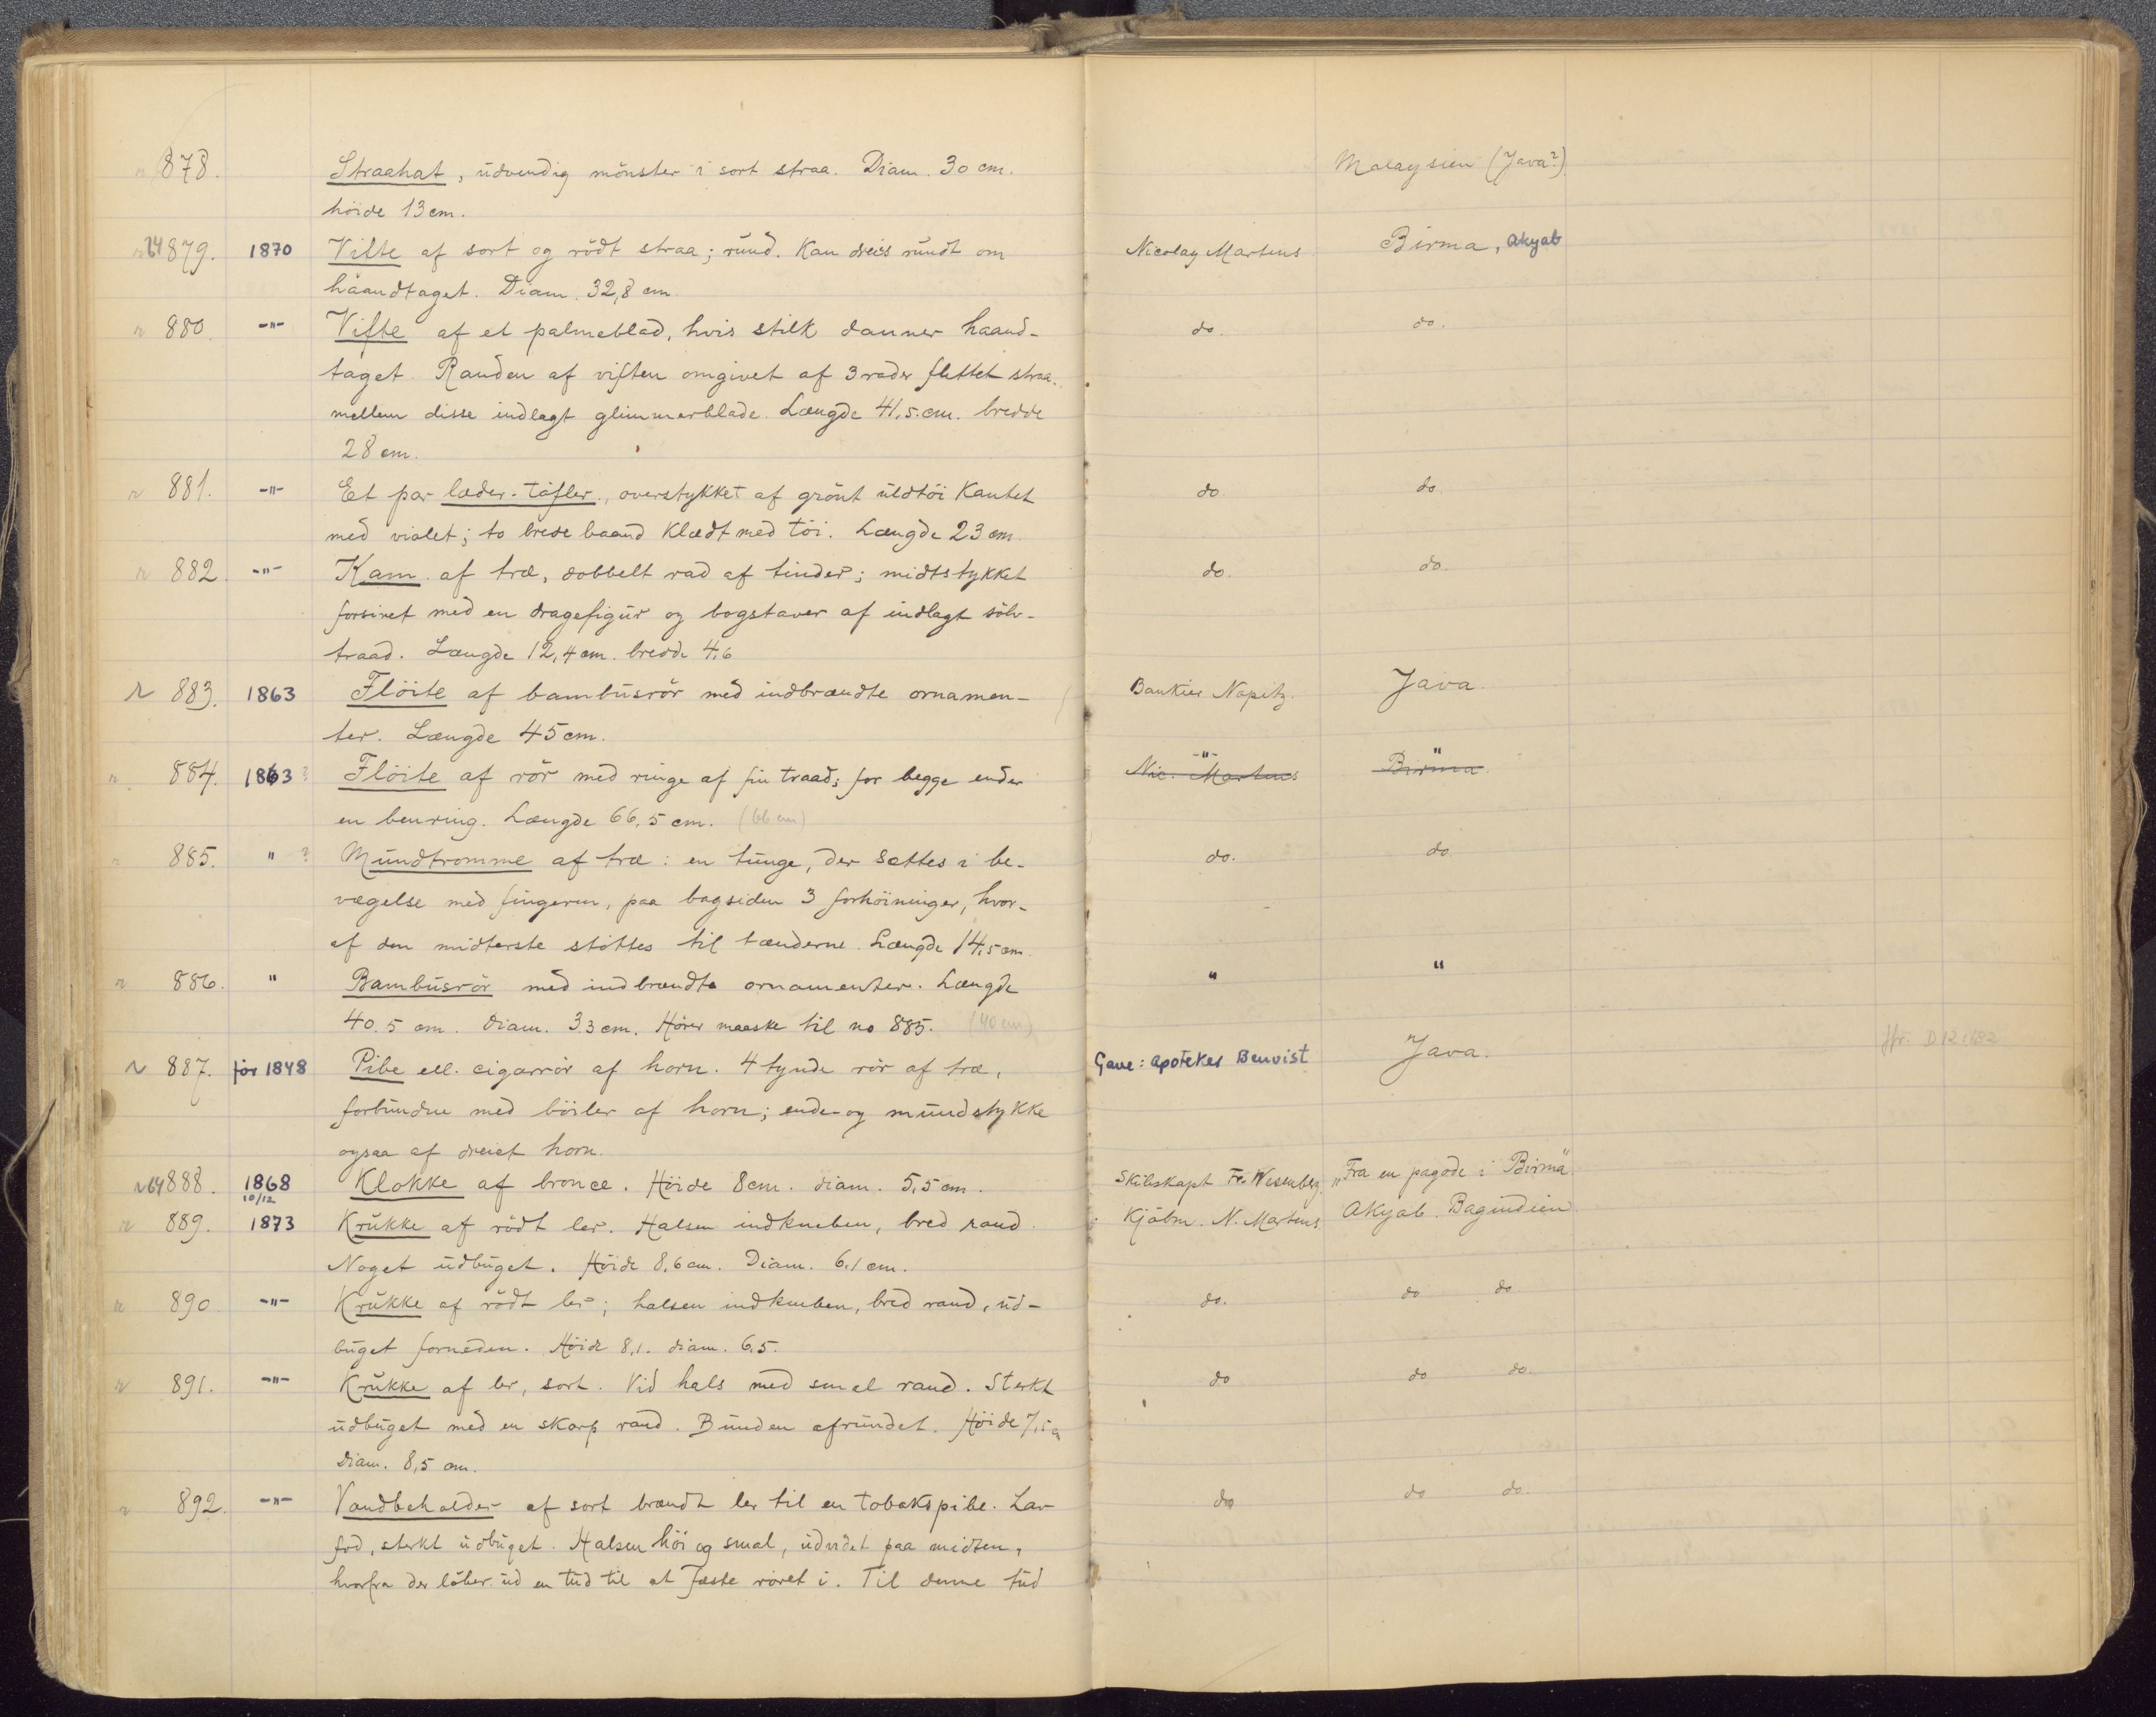 878. Straahat, udvendig mönster i sort straa. Diam. 30 cm. Malaysien (Java?)
höide 13 cm.
879. 1870 Vifte af sort og rödt straa; rund. Kan dreies rundt om Nicolay Martens Birma, Akyab
haandtaget. Diam. 32,8 cm.
880. -"- Vifte af et palmeblad, hvis stilk danner haand- do. do.
taget. Randen af viften omgivet af 3 rader flettet straa.
mellem disse indlagt glimmerblade. Længde 41,5. cm. bredde
28 cm.
881. -"- Et par læder-töfler, overstykket af grönt uldtöi kantet do. do.
med violet; to brede baand klædt med töi. Længde 23 cm.
882. -"- Kam af træ, dobbelt rad af tinder; midtstykket do. do.
forsiret med en dragefigur og bogstaver af indlagt sölv-
traad. Længde 12,4 cm. bredde 4,6
883. 1863 Flöite af bambusrör med indbrændte ornamen- Bankier Nopitz. Java.
ter. Længde 45 cm.
884. 1863? Flöite af rör med ringe af fin traad; for begge ender -"- Nic. Martens " Birma
en benring. Længde 66,5 cm. (66 cm)
885. " ? Mundtromme af træ: en tunge, der sættes i be- do. do.
vægelse med fingeren, paa bagsiden 3 forhöininger, hvor-
af den midterste stöttes til tænderne. Længde 14,5 cm.
886. " Bambusrör med indbrændte ornamenter. Længde " "
40.5 cm. Diam. 3.3 cm. Hörer maaske til no 885. (40 cm)
887. för 1848 Pibe ell. cigarrör af horn. 4 tynde rör af træ, Gave: Apoteker Benvist Java. Jfr. D 12 1682
forbundne med böiler af horn; ende- og mundstykke
ogsaa af dreiet horn.
888. 1868 10/12 Klokke af bronce. Höide 8 cm. diam. 5,5 cm. Skibskapt Fr. Wesenberg. "Fra en pagode i Birma"
889. 1873 Krukke af rödt ler. Halsen indkneben, bred rand. Kjöbm. N. Martens. Akyab. Bagindien.
Noget udbuget. Höide 8,6 cm. Diam. 6,1 cm.
890. -"- Krukke af rödt ler; halsen indkneben, bred rand, ud- do. do do.
buget forneden. Höide 8,1. diam. 6,5.
891. -"- Krukke af ler, sort. Vid hals med smal rand. Sterkt do do do.
udbuget med en skarp rand. Bunden afrundet. Höide 7,5
Diam. 8,5 cm.
892. -"- Vandbeholder af sort brændt ler til en tobakspibe. Lav do do do.
fod, sterkt udbuget. Halsen höi og smal, udvidet paa midten,
hvorfra der löber ud en tud til at fæste röret i. Til denne tud